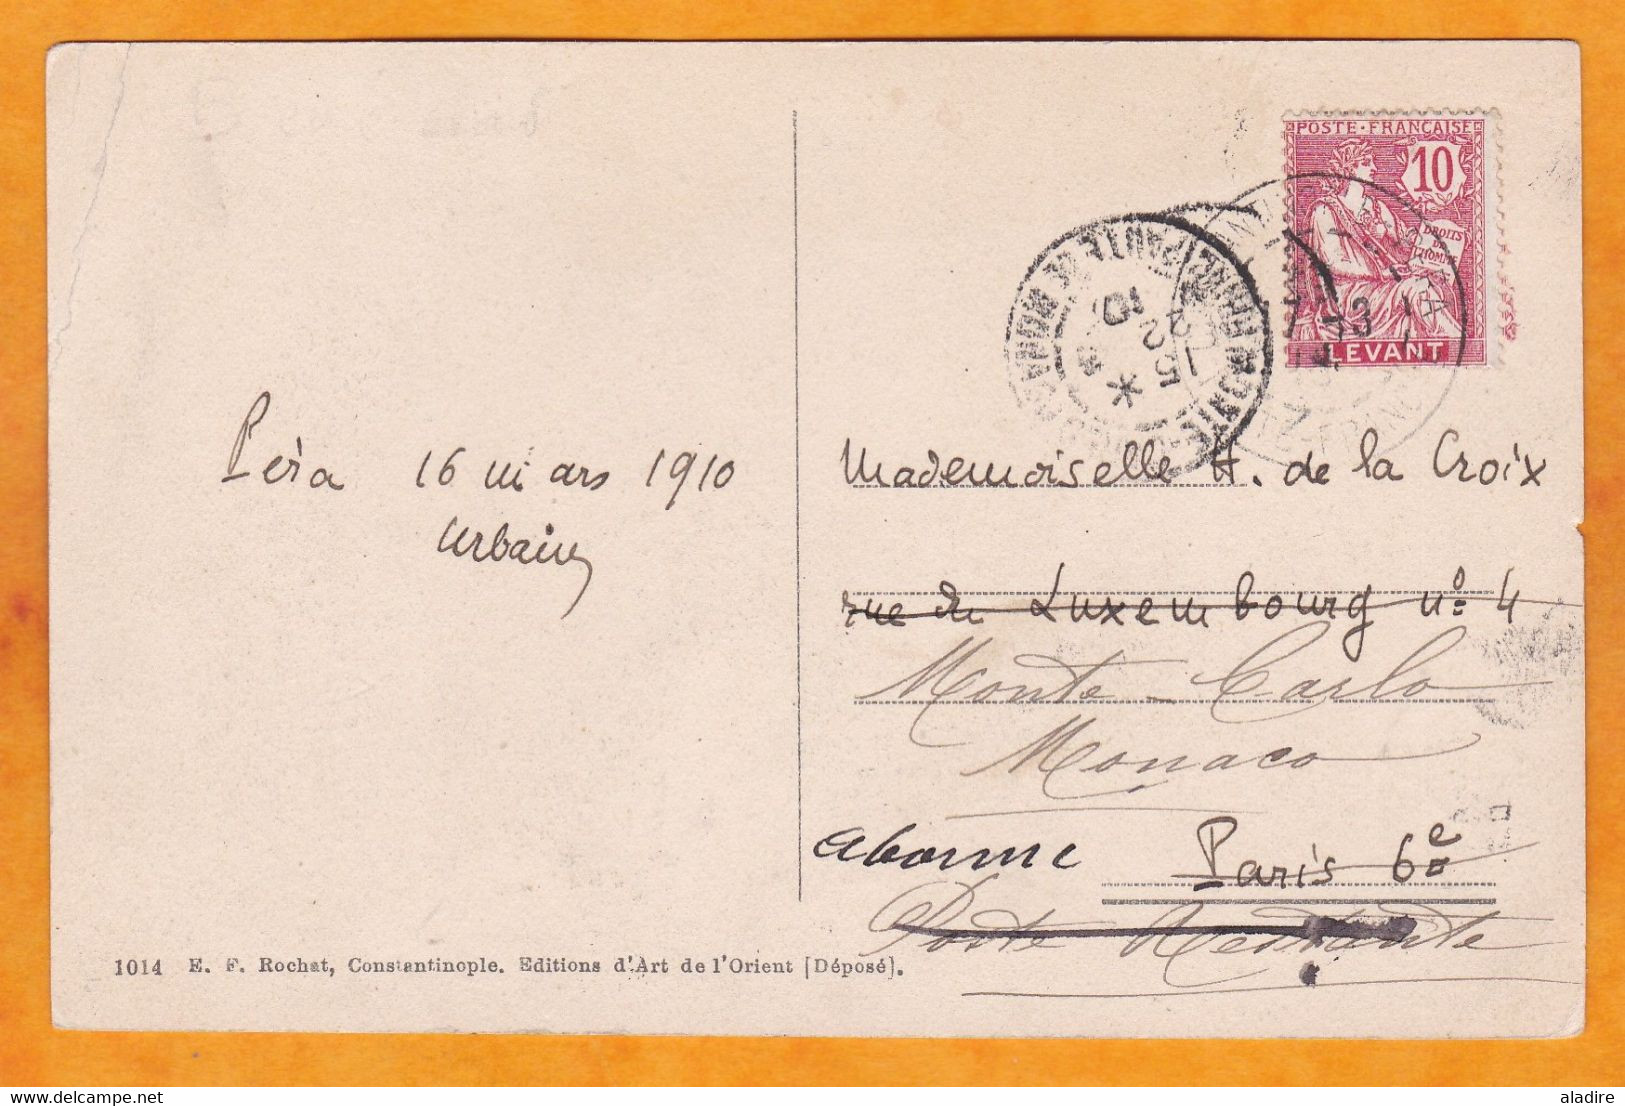 POSTE · FRANÇAISE
10
DROITS
DE
L'HOMME
LEVANT
MONTE-CARLO PRINCIPAUTÉ DE MONACO
25-3
10
Péra 16 mars 1910
Urbain
Mademoiselle H. de la Croix
rue du Luxembourg nº 4
Monte-Carlo
Monaco
Paris 6e
Poste Restante
1014 E. F. Rochat, Constantinople. Editions d'Art de l'Orient [Déposé].
aladire